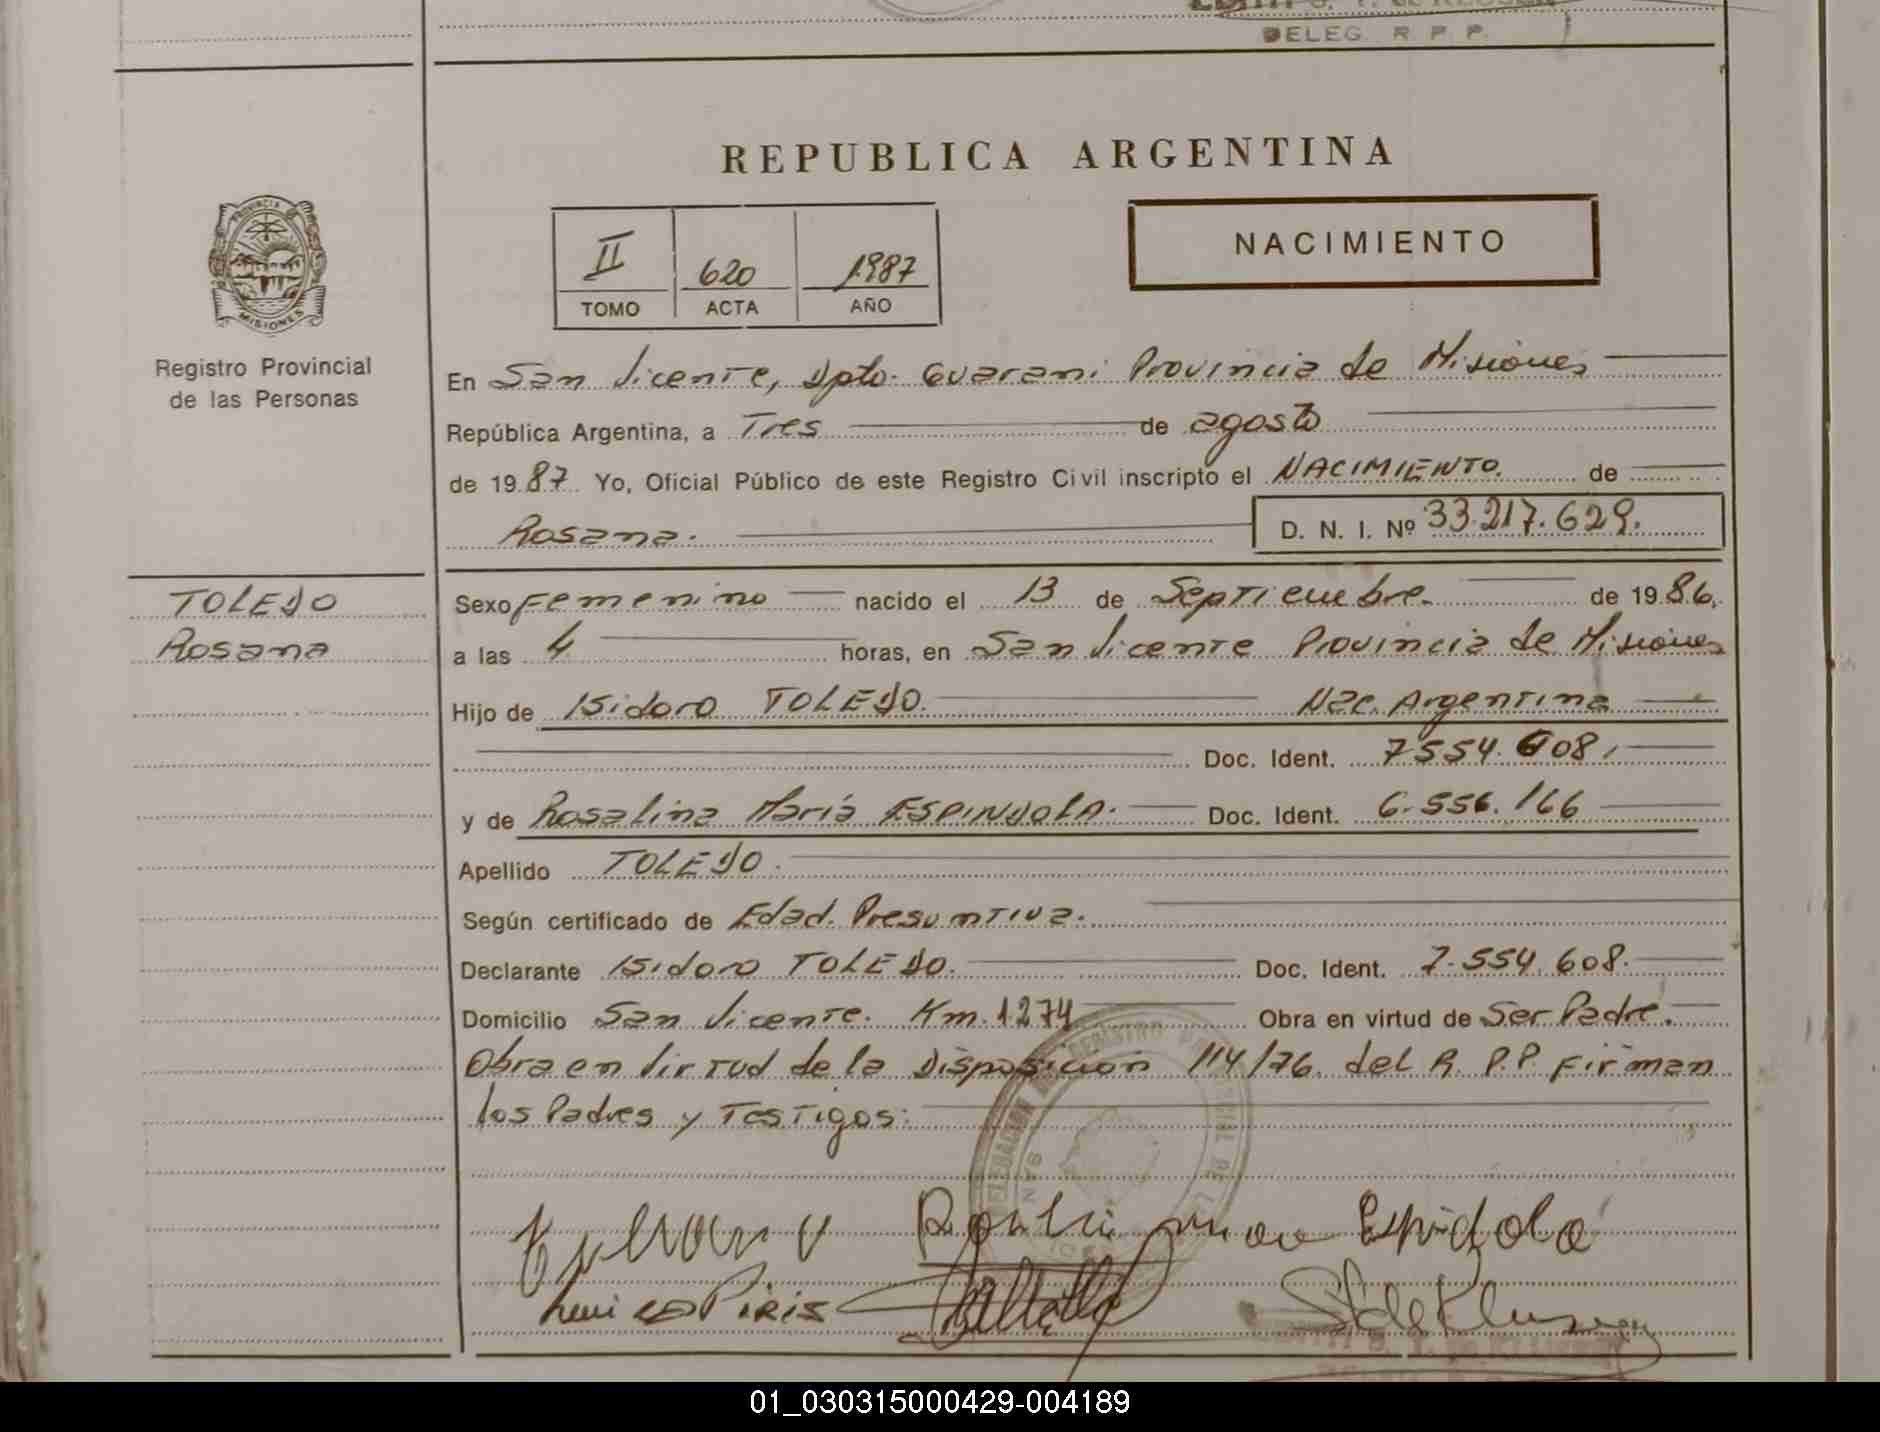 DELEG. R. P. P.
REPUBLICA ARGENTINA
PROVINCIA DE
MISIONES
II 620 1987
TOMO ACTA AÑO
NACIMIENTO
Registro Provincial
de las Personas
En San Vicente, Dpto. Guarani Provincia de Misiones
República Argentina, a Tres de agosto
de 19 87 Yo, Oficial Público de este Registro Civil inscripto el NACIMIENTO. de
Rosana. D. N. I. Nº 33.217.629.
TOLEDO
Rosana
Sexo Femenino nacido el 13 de Septiembre. de 19 86.
a las 4 horas, en San Vicente Provincia de Misiones
Hijo de Isidoro TOLEDO. Nac. Argentina
Doc. Ident. 7554.608.
y de Rosalina María ESPINDOLA. Doc. Ident. 6.556.166
Apellido TOLEDO.
Según certificado de Edad. Presuntiva.
Declarante Isidoro TOLEDO. Doc. Ident. 7.554.608.
Domicilio San Vicente. Km. 1274 Obra en virtud de Ser Padre.
Obra en Virtud de la Disposición 114/76. del R. P.P. Firman
los Padres y Testigos:
Espidola
PIRIS
01_030315000429-004189